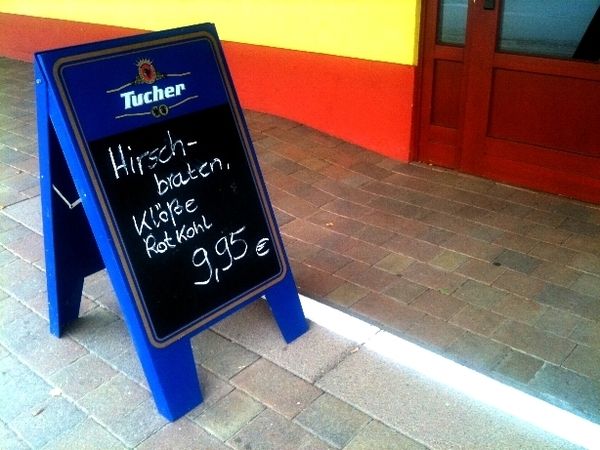 Tucher
Hirsch-
braten,
Klöße
Rotkohl
9,95 €